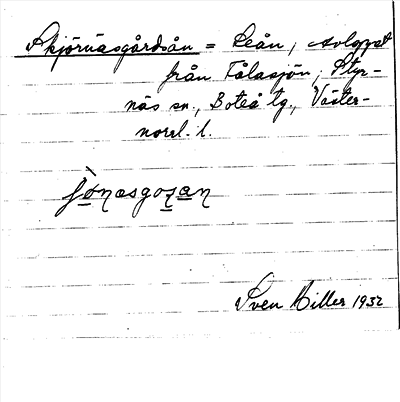 Skjörnäsgårdsån = Leån, Avloppet
från Tålasjön, Styr-
näs sn., Boteå tg., Väster-
norrl. l.
Sven Hiller 1932